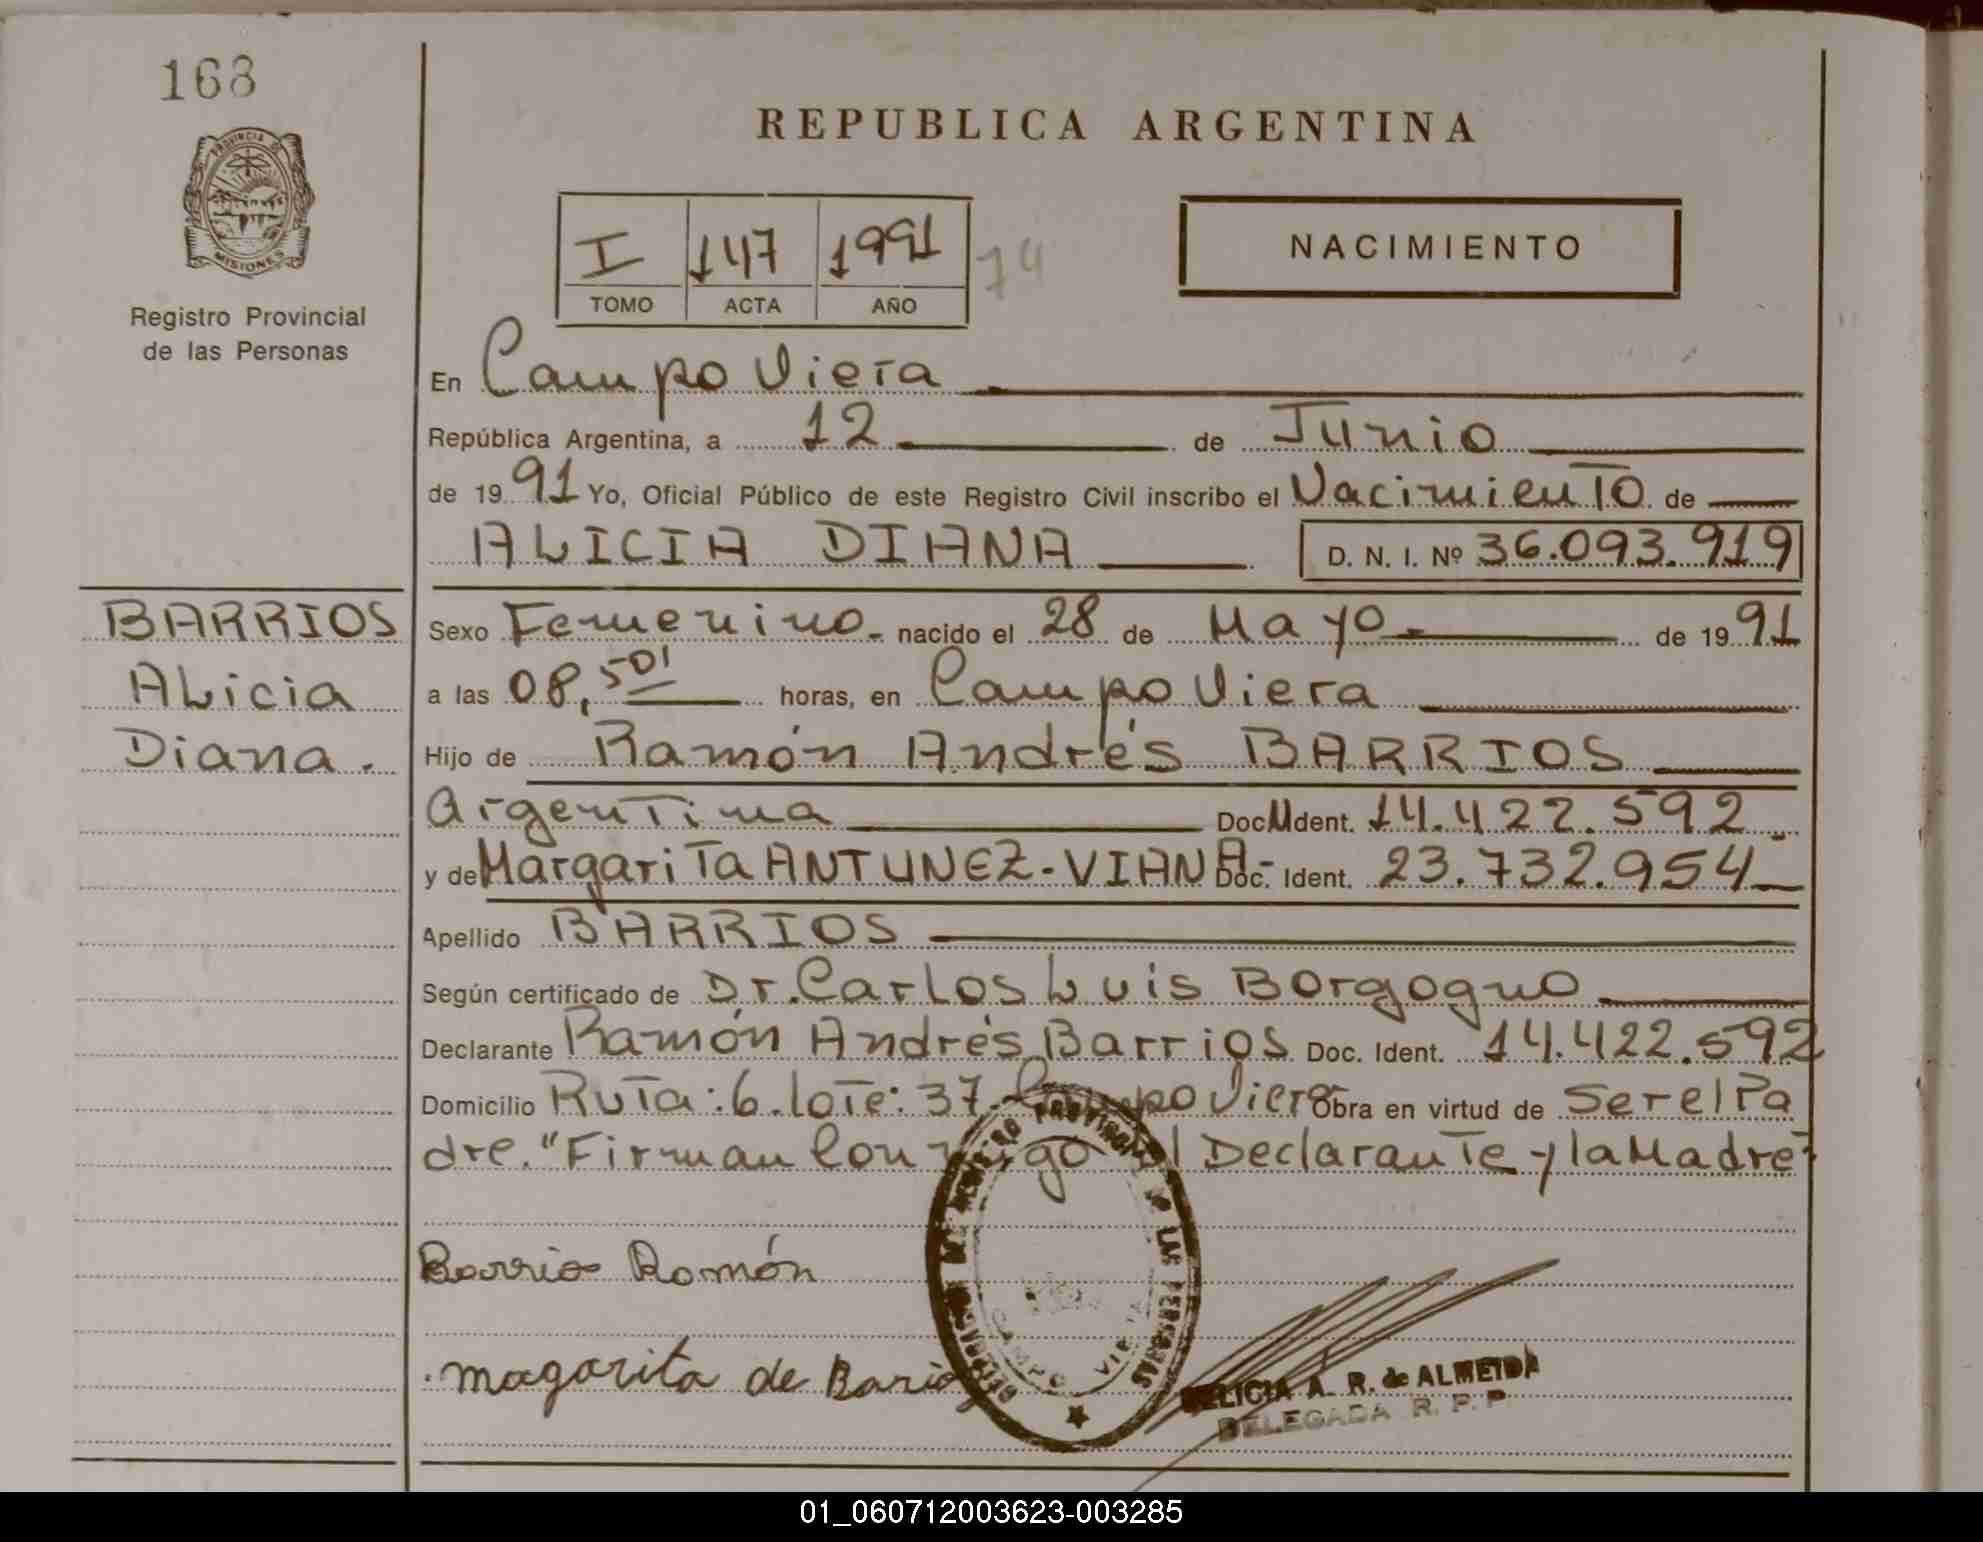 168
PROVINCIA DE
MISIONES
Registro Provincial
de las Personas
REPUBLICA ARGENTINA
I 147 1991 74
TOMO ACTA AÑO
NACIMIENTO
En Campo Viera
República Argentina, a 12 de Junio
de 1991 Yo, Oficial Público de este Registro Civil inscribo el Nacimiento de
ALICIA DIANA D. N. I. Nº 36.093.919
BARRIOS
Alicia
Diana.
Sexo Femenino. nacido el 28 de Mayo. de 1991
a las 08,50' horas, en Campo Viera
Hijo de Ramón Andrés BARRIOS
Argentina Doc. Ident. 14.422.592.
y de Margarita ANTUNEZ-VIANA- Doc. Ident. 23.732.954
Apellido BARRIOS
Según certificado de Dr. Carlos Luis Borgogno
Declarante Ramón Andrés Barrios Doc. Ident. 14.422.592
Domicilio Ruta: 6. lote: 37 Campo Viera Obra en virtud de Ser el Pa
dre. "Firman Conmigo el Declarante y la Madre"
Barrios Ramón
magarita de Barios
DELEGACION DEL REGISTRO PROVINCIAL DE LAS PERSONAS
CAMPO VIERA
FELICIA A. R. de ALMEIDA
DELEGADA R. P. P.
01_060712003623-003285